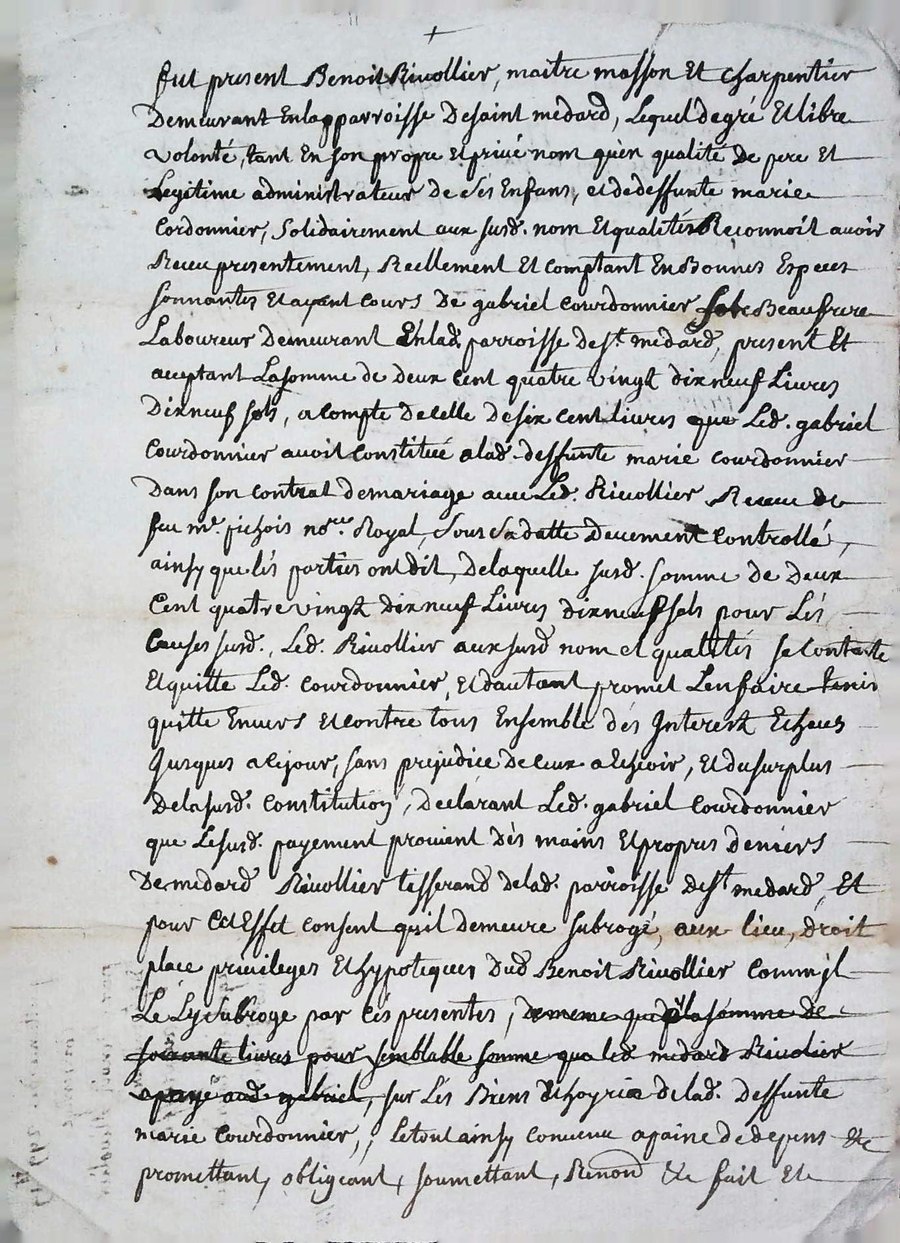 fut present Benoit Riuollier, maitre masson Et charpentier
Demeurant Enlapparroisse Desaint medard, Lequel degré Et libre
volonté, tant En son propre et privé nom qu'en qualité de pere Et
Legitime administrateur De sés Enfans, et dedeffunte marie
Cordonnier, Solidairement aux susd. nom Et qualités Reconnoit avoir
Receu presentement, Reellement Et Comptant En Bonnes Especes
sonnantes Et ayant cours De gabriel Courdonnier Beaufrere
Laboureur Demeurant Enlad. parroisse de st. medard, present Et
aceptant La somme de deux Cent quatre vingt dix neuf Livres
Dixneuf sols, a compte De celle de six cent livres que Led. gabriel
Courdonnier avoit constitué alad. deffunte marie Courdonnier
Dans son contrat de mariage avec Led. Riuollier Receu de
feu me. no.re Royal, sous sa datte Deuement controllé,
ainsy que lés parties ont dit, de laquelle susd. somme de deux
Cent quatre vingt dix neuf Livres dix neuf sols pour Lés
Causes susd., Led. Riuollier aux susd nom et qualités se Contente
Et quitte Led. Courdonnier, Et dautant promet L'en faire tenir
quitte Enuers Et contre tous Ensemble dés Interest Echeus
Jusques a ce jour, sans prejudice de ceux a Echeoir, Et du surplus
de la susd. Constitution, Declarant Led. gabriel Courdonnier
que Le susd. payement provient Dés mains Et propres deniers
De medard Riuollier tisserand delad. parroisse de st medard, Et
pour Cet Effet Consent qu'il demeure subrogé, aux lieu, droit
place privileges Et hypoteques Dud Benoit Riuollier Comm'jl
Le Ly subroge par cés presentes, de meme que pr la somme de
soixante livres pour semblable somme que led medard Riuolier
a payé aud gabriel, sur Lés Biens delad. Deffunte
marie Courdonnier,, le tout ainsy convenu a paine de depens Etc
promettant, obligeant, soumettant, Renond Etc fait Etc